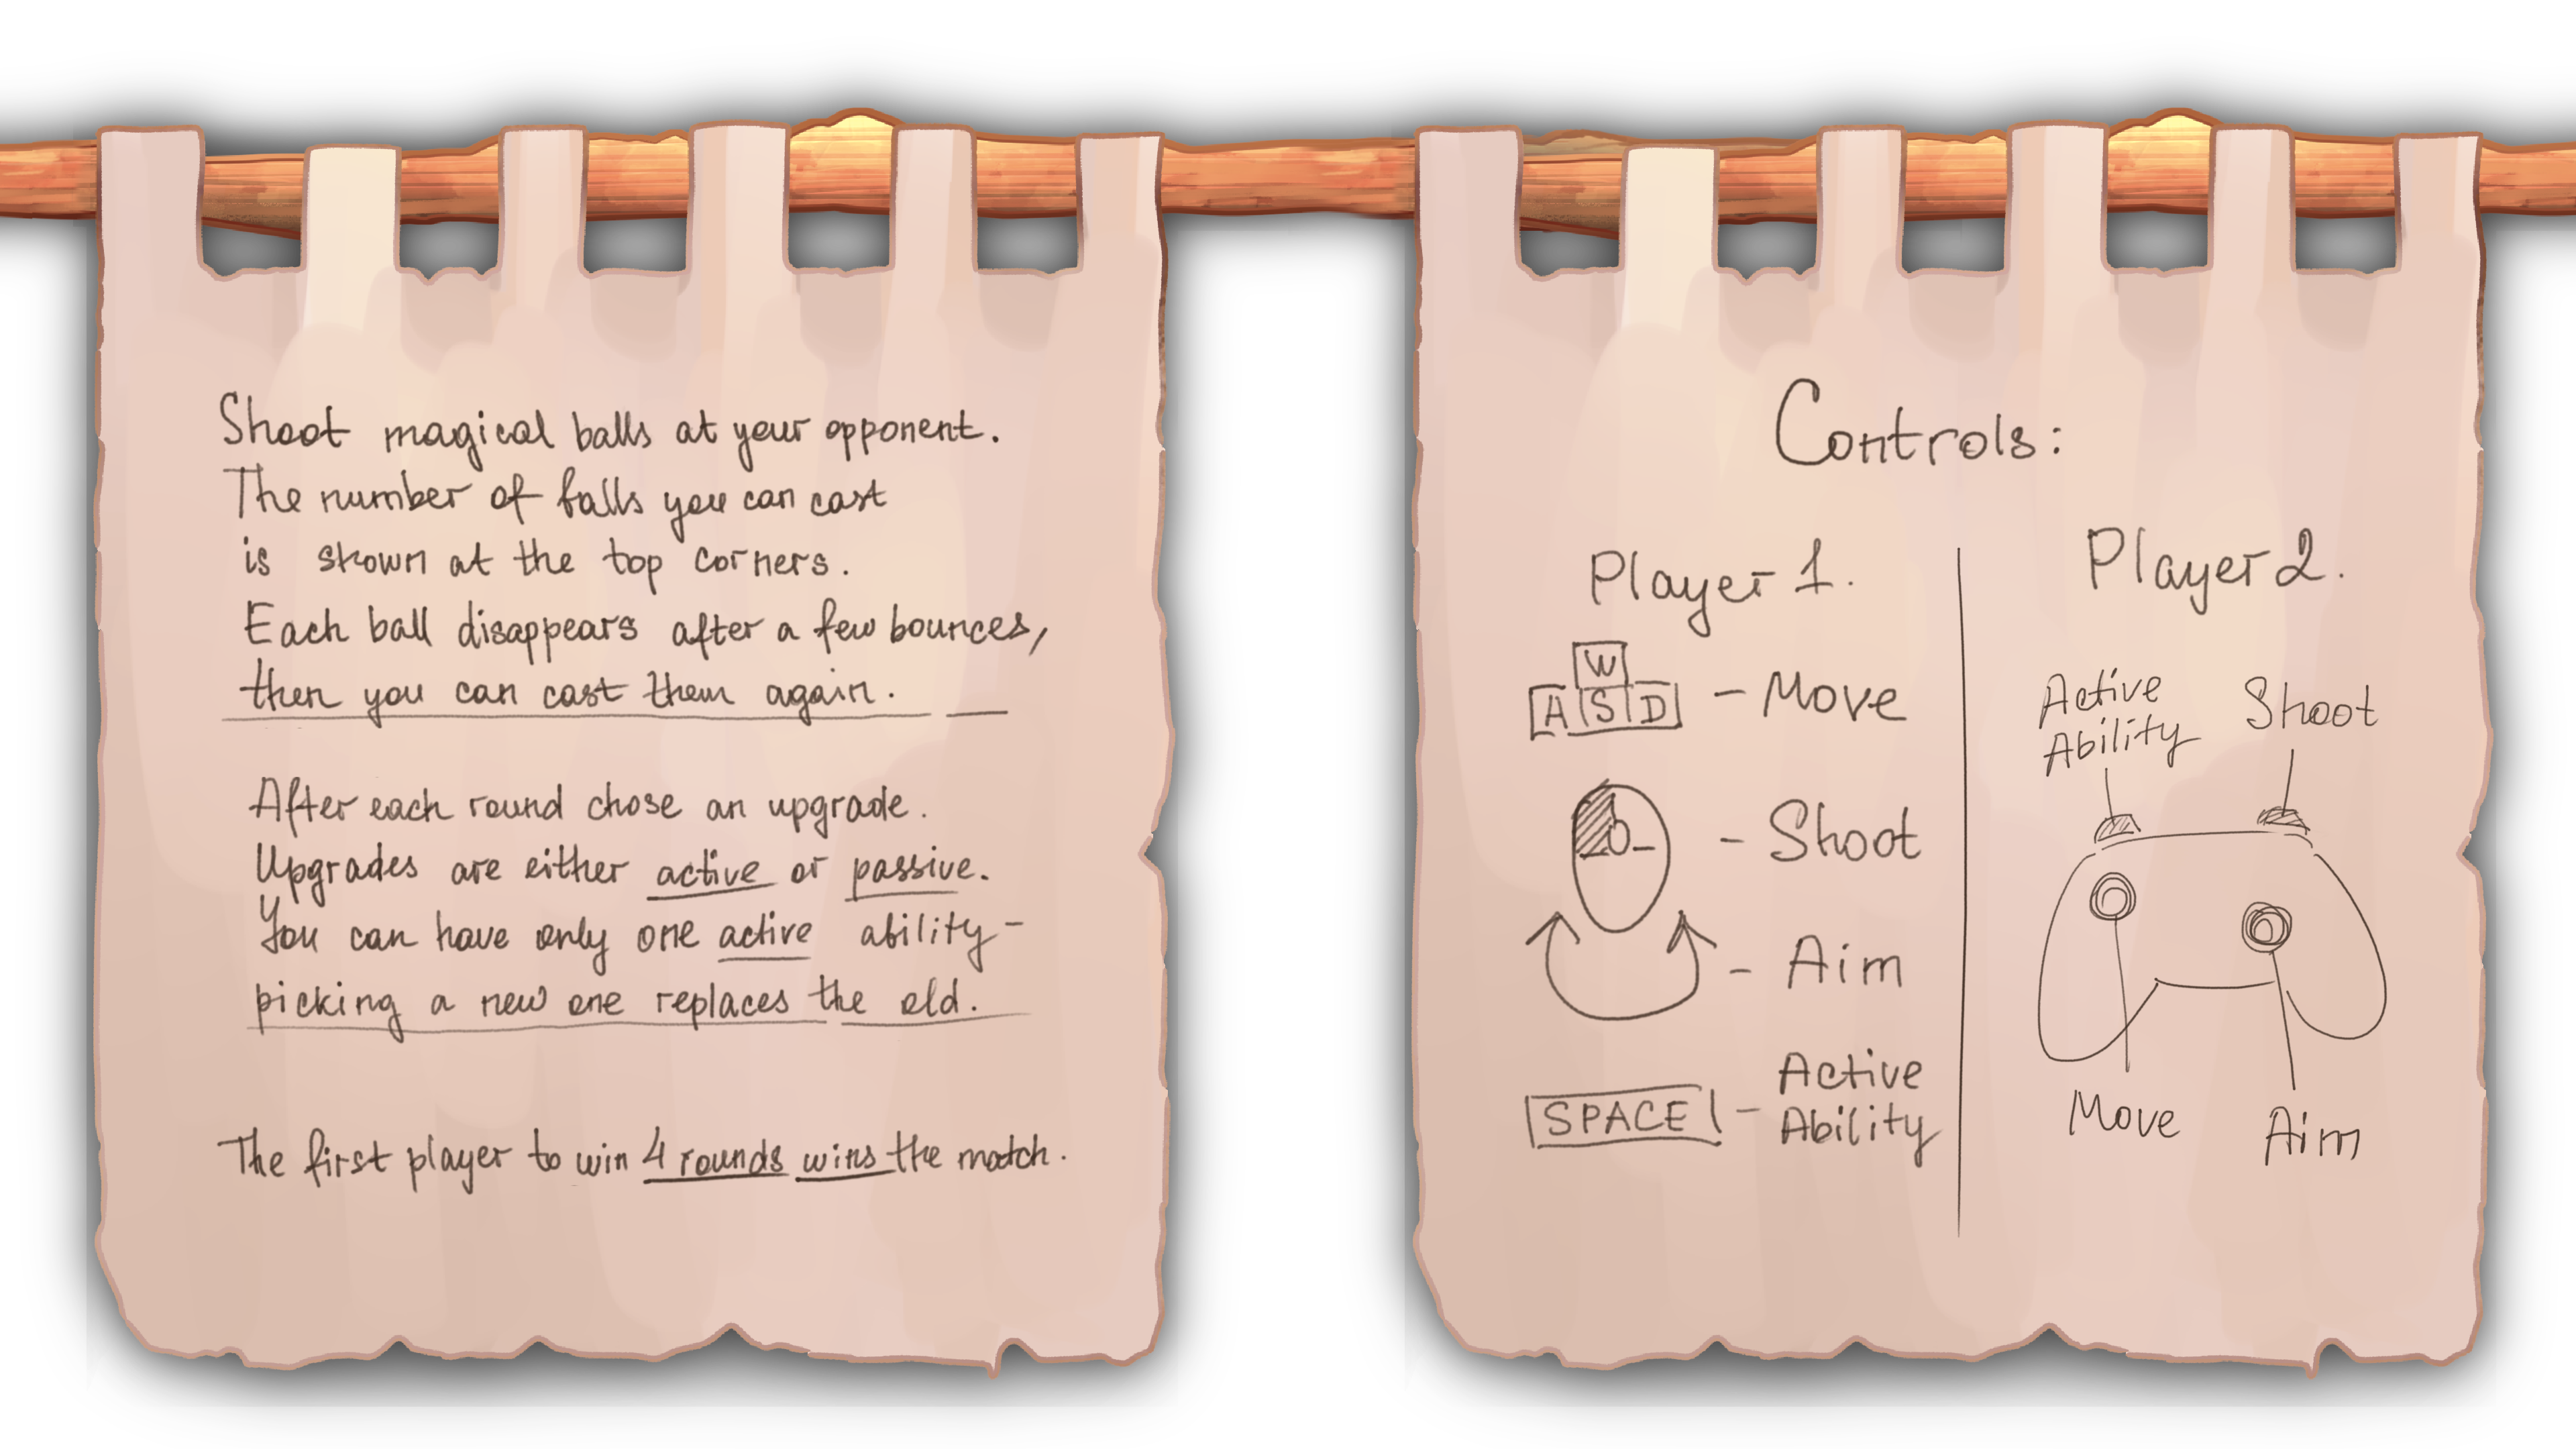 Shoot magical balls at your opponent.
The number of balls you can cast
is shown at the top corners.
Each ball disappears after a few bounces,
then you can cast them again.
After each round chose an upgrade.
Upgrades are either active or passive.
You can have only one active ability-
picking a new one replaces the old.
The first player to win 4 rounds wins the match.
Controls:
Player 1.
W
A S D - Move
- Shoot
- Aim
SPACE - Active
Ability
Player 2.
Active
Ability
Shoot
Move
Aim